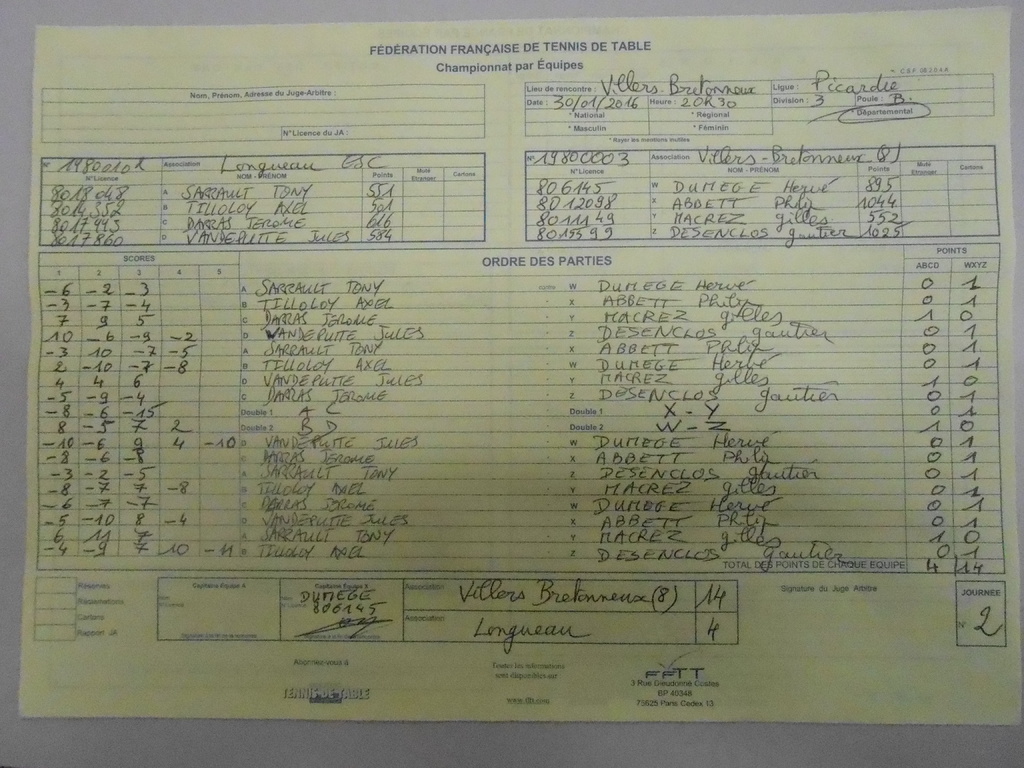 FÉDÉRATION FRANÇAISE DE TENNIS DE TABLE
Championnat par Équipes
Nom, Prénom, Adresse du Juge-Arbitre :
N°Licence du JA :
Lieu de rencontre : Villers-Bretonneux Ligue : Picardie
Date : 30/01/2016 Heure : 20H30 Division : 3 Poule : B.
* National * Régional * Départemental
* Masculin * Féminin
* Rayer les mentions inutiles
N° 1980010 Association Longueau ESC
N°Licence NOM - PRÉNOM Points Muté Etranger Cartons
8018048 A SARRAULT TONY 551
8014552 B TILLOLOY AXEL 501
8017443 C DARRAS JEROME 616
8017860 D VANDEPUTTE JULES 584
N° 19800003 Association Villers-Bretonneux (8)
N°Licence NOM - PRÉNOM Points Muté Etranger Cartons
806145 W DUMEGE Hervé 895
8012098 X ABBETT 1044
8011149 Y MACREZ gilles 552
8015599 Z DESENCLOS gautier 1025
SCORES ORDRE DES PARTIES POINTS
1 2 3 4 5 ABCD WXYZ
-6 -2 -3 A SARRAULT TONY contre W DUMEGE Hervé 0 1
-3 -7 -4 B TILLOLOY AXEL X ABBETT 0 1
7 9 5 C DARRAS JEROME Y MACREZ gilles 1 0
10 -6 -9 -2 D VANDEPUTTE JULES Z DESENCLOS gautier 0 1
-3 10 -7 -5 A SARRAULT TONY X ABBETT 0 1
2 -10 -7 -8 B TILLOLOY AXEL W DUMEGE Hervé 0 1
4 4 6 D VANDEPUTTE JULES Y MACREZ gilles 1 0
-5 -9 -4 C DARRAS JEROME Z DESENCLOS gautier 0 1
-8 -6 -15 Double 1 A C Double 1 X - Y 0 1
8 -5 7 2 Double 2 B D Double 2 W - Z 1 0
-10 -6 9 4 -10 D VANDEPUTTE JULES W DUMEGE Hervé 0 1
-8 -6 -8 C DARRAS JEROME X ABBETT 0 1
-3 -2 -5 A SARRAULT TONY Z DESENCLOS gautier 0 1
-8 -7 7 -8 B TILLOLOY AXEL Y MACREZ gilles 0 1
-6 -7 -7 C DARRAS JEROME W DUMEGE Hervé 0 1
-5 -10 8 -4 D VANDEPUTTE JULES X ABBETT 0 1
6 11 7 A SARRAULT TONY Y MACREZ gilles 1 0
-4 -9 7 10 -11 B TILLOLOY AXEL Z DESENCLOS gautier 0 1
TOTAL DES POINTS DE CHAQUE EQUIPE 4 14
Réserves
Réclamations
Cartons
Rapport JA
Capitaine Equipe A
Capitaine Equipe B
DUMEGE
806145
Association Villers Bretonneux (8) 14
Association Longueau 4
Signature du Juge Arbitre
JOURNÉE
N° 2
Abonnez-vous à
TENNIS DE TABLE
Toutes les informations
sont disponibles sur
www.fftt.com
FFTT
3 Rue Dieudonné Costes
BP 40348
75625 Paris Cedex 13